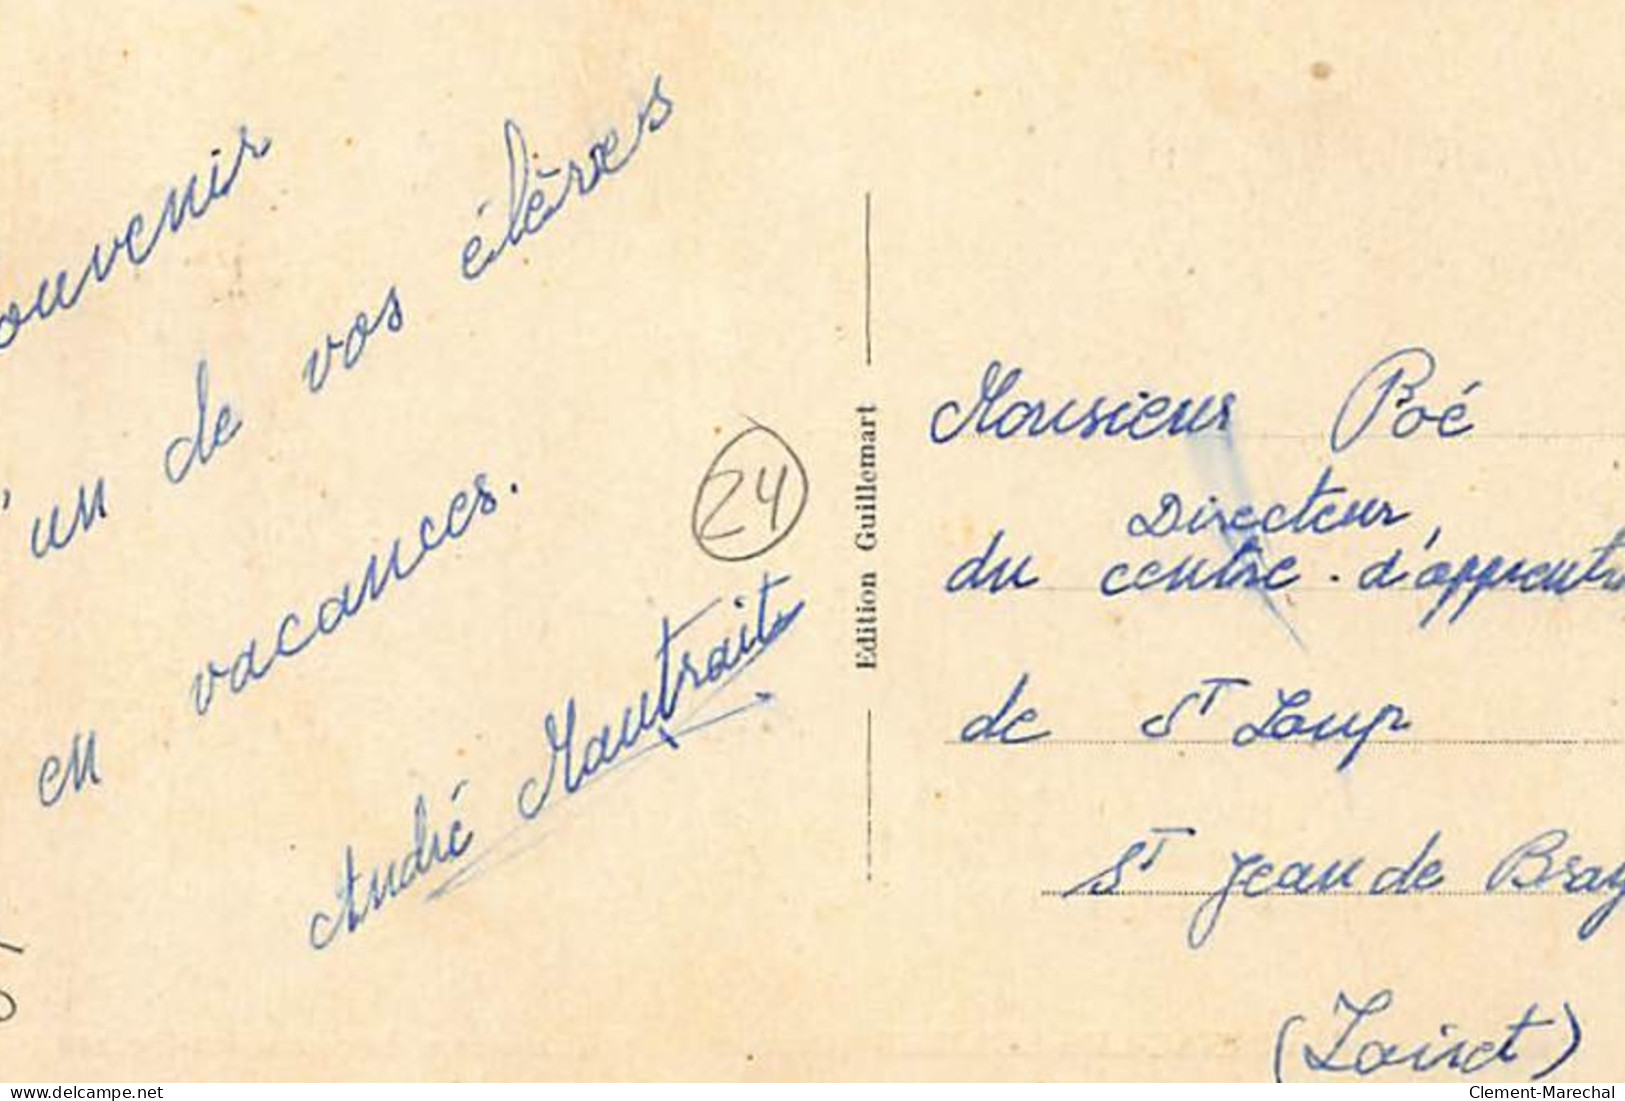 ouvenir
'un de vos élèves
en vacances.
André Mautraits
24
Edition Guillemart
Monsieur Poé
Directeur
du centre d'apprenti
de St Loup
St Jean de Bray
(Loiret)
delcampe.net
Clement-Marechal